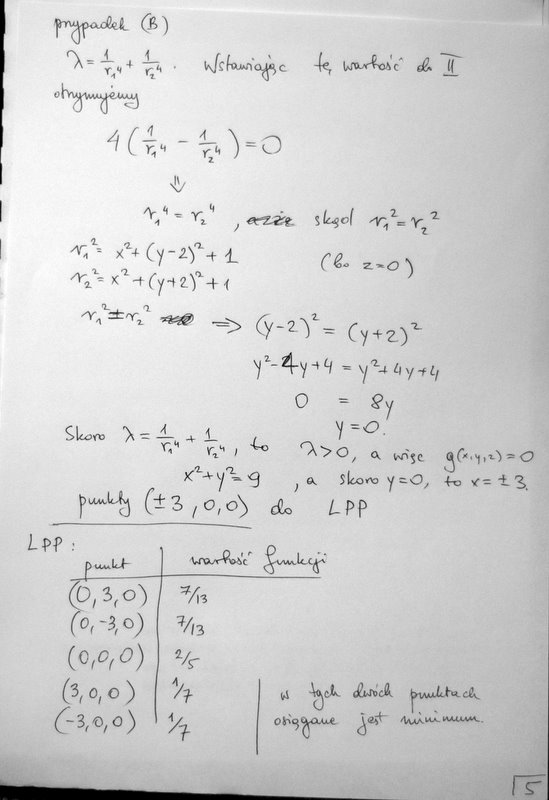 przypadek (B)
λ = 1/r₁⁴ + 1/r₂⁴. Wstawiając tę wartość do II
otrzymujemy
4 ( 1/r₁⁴ - 1/r₂⁴ ) = 0
⇓
r₁⁴ = r₂⁴, skąd r₁² = r₂²
r₁² = x² + (y-2)² + 1
r₂² = x² + (y+2)² + 1 (bo z=0)
r₁² = r₂² ⟹ (y-2)² = (y+2)²
y² - 4y + 4 = y² + 4y + 4
0 = 8y
y = 0.
Skoro λ = 1/r₁⁴ + 1/r₂⁴, to λ > 0, a więc g(x,y,z) = 0
x² + y² = 9, a skoro y=0, to x = ±3.
punkty (±3, 0, 0) do LPP
LPP:
punkt wartość funkcji
(0, 3, 0) 7/13
(0, -3, 0) 7/13
(0, 0, 0) 2/5
(3, 0, 0) 1/7 w tych dwóch punktach
(-3, 0, 0) 1/7 osiągane jest minimum.
5